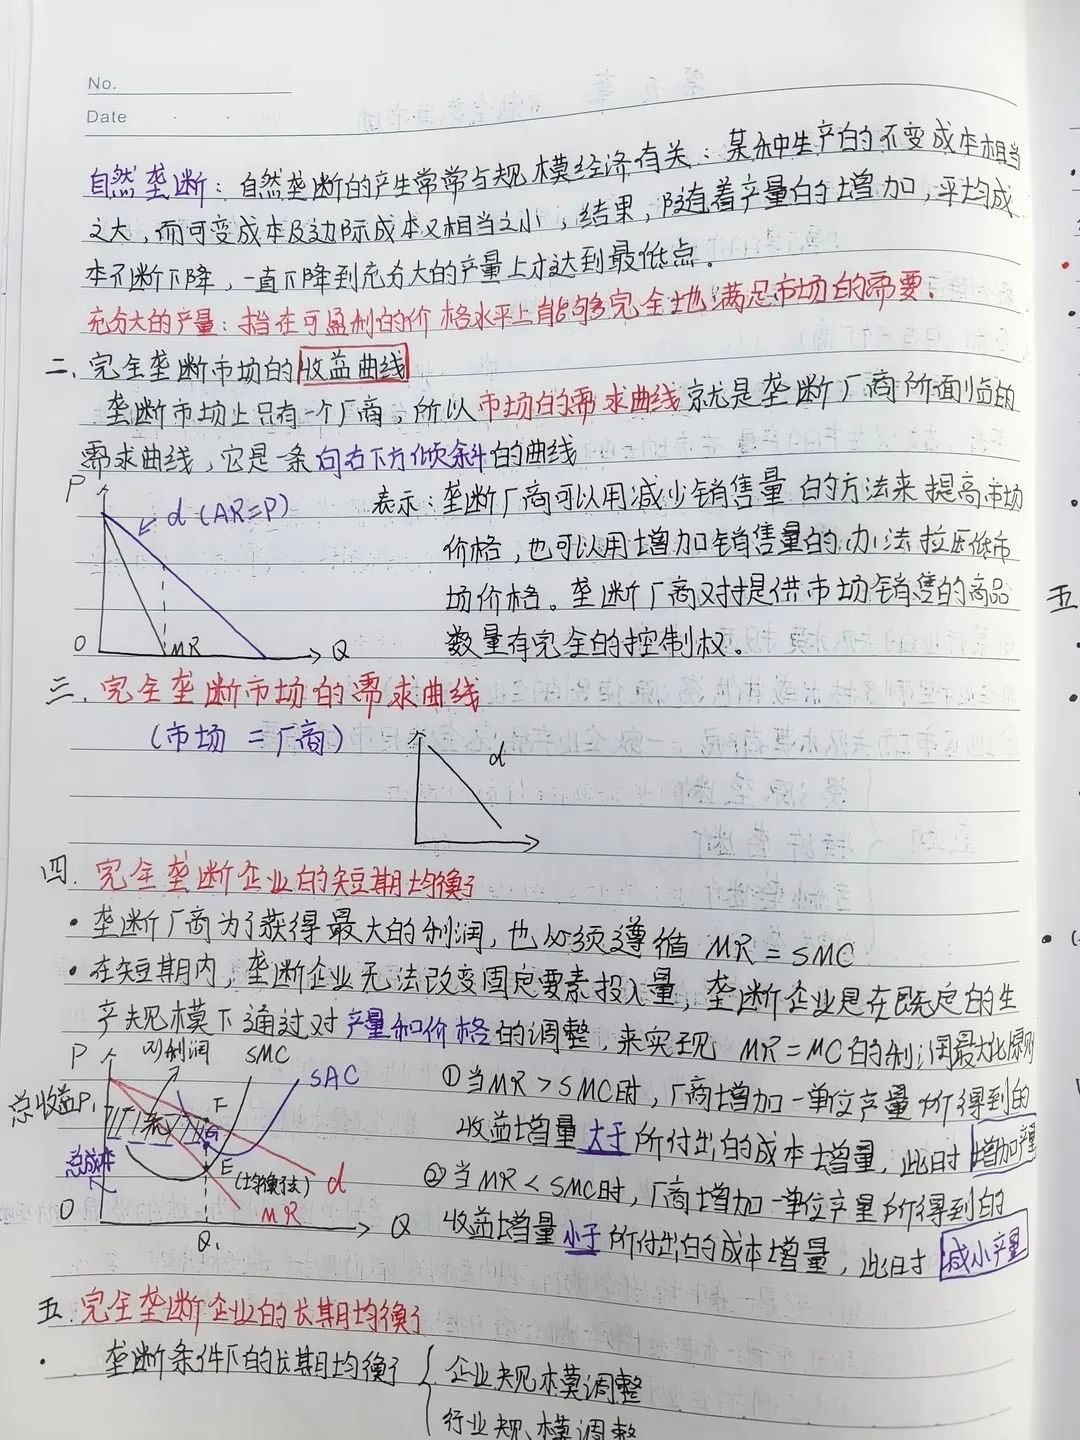 No.
Date
自然垄断：自然垄断的产生常常与规模经济有关：某种生产的不变成本相当
之大，而可变成本及边际成本又相当之小，结果，随着产量的增加，平均成
本不断下降，一直下降到充分大的产量上才达到最低点。
充分大的产量：指在可盈利的价格水平上能够完全地满足市场的需要。
二、完全垄断市场的收益曲线
垄断市场上只有一个厂商，所以市场的需求曲线就是垄断厂商所面临的
需求曲线，它是一条向右下方倾斜的曲线
P
d (AR=P)
O
MR
Q
表示：垄断厂商可以用减少销售量的方法来提高市场
价格，也可以用增加销售量的办法拉压低市
场价格。垄断厂商对提供市场销售的商品
数量有完全的控制权。
三、完全垄断市场的需求曲线
(市场 = 厂商)
d
四. 完全垄断企业的短期均衡
• 垄断厂商为了获得最大的利润，也必须遵循 MR = SMC
• 在短期内，垄断企业无法改变固定要素投入量，垄断企业是在既定的生
产规模下通过对产量和价格的调整，来实现 MR = MC的利润最大化原则
P
利润
SMC
SAC
总收益P₁
F
G
总成本
E
(均衡法)
d
MR
O
Q₁
Q
①当MR > SMC时，厂商增加一单位产量所得到的
收益增量大于所付出的成本增量，此时增加产量
②当MR < SMC时，厂商增加一单位产量所得到的
收益增量小于所付出的成本增量，此时减小产量
五. 完全垄断企业的长期均衡
• 垄断条件下的长期均衡
企业规模调整
行业规模调整
五